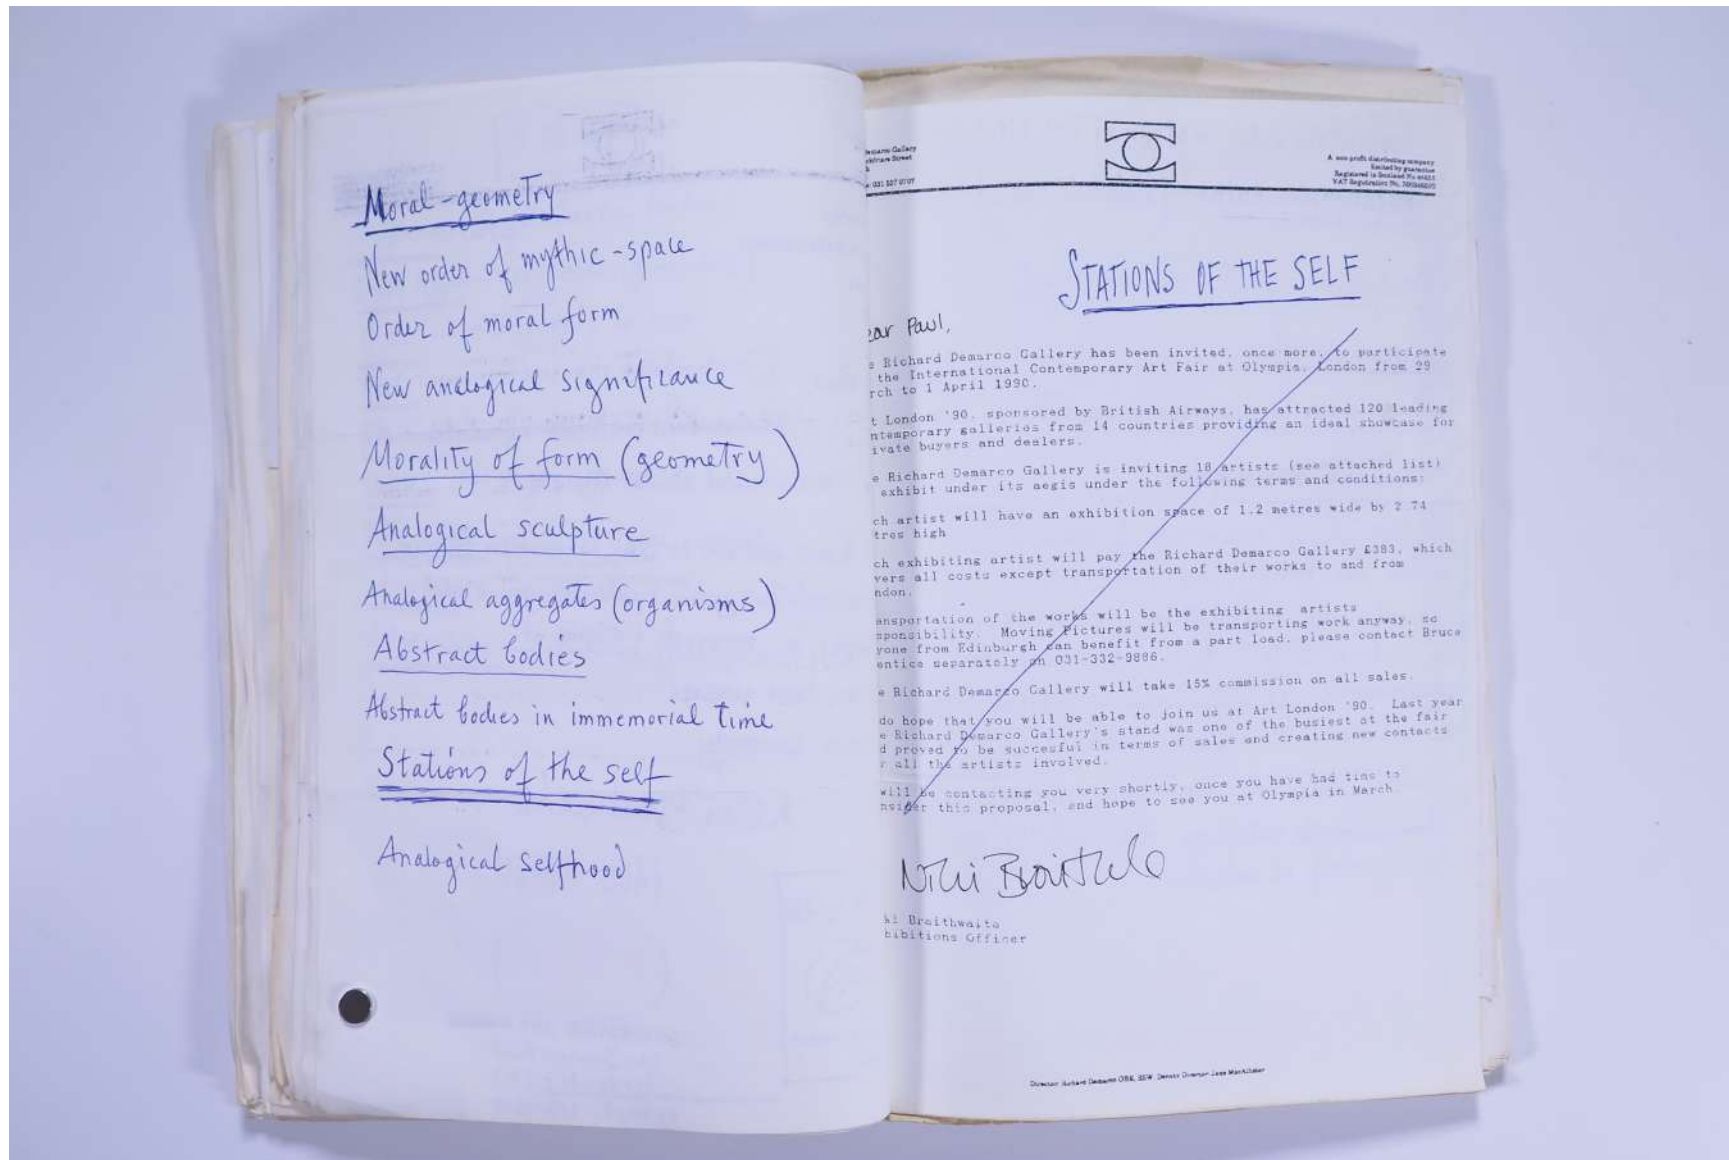 Moral-geometry
New order of mythic-space
Order of moral form
New analogical significance
Morality of form (geometry)
Analogical sculpture
Analogical aggregates (organisms)
Abstract bodies
Abstract bodies in immemorial time
Stations of the self
Analogical selfhood
Gallery
Street
A non profit distributing company
limited by guarantee
Registered in Scotland No
VAT Registration No.
STATIONS OF THE SELF
ear Paul,
e Richard Demarco Gallery has been invited, once more, to participate
the International Contemporary Art Fair at Olympia, London from 29
rch to 1 April 1990.
t London '90, sponsored by British Airways, has attracted 120 leading
ntemporary galleries from 14 countries providing an ideal showcase for
ivate buyers and dealers.
e Richard Demarco Gallery is inviting 18 artists (see attached list)
exhibit under its aegis under the following terms and conditions:
ch artist will have an exhibition space of 1.2 metres wide by 2 74
tres high
ch exhibiting artist will pay the Richard Demarco Gallery £383, which
vers all costs except transportation of their works to and from
ndon.
ansportation of the works will be the exhibiting artists
sponsibility. Moving Pictures will be transporting work anyway, so
yone from Edinburgh can benefit from a part load, please contact Bruce
entice separately on 031-332-9886.
e Richard Demarco Gallery will take 15% commission on all sales.
do hope that you will be able to join us at Art London '90. Last year
e Richard Demarco Gallery's stand was one of the busiest at the fair
d proved to be succesful in terms of sales and creating new contacts
r all the artists involved.
will be contacting you very shortly, once you have had time to
nsider this proposal, and hope to see you at Olympia in March.
ki Braithwaite
hibitions Officer
Director Richard Demarco OBE, RSW, Deputy Director Jane MacAllister